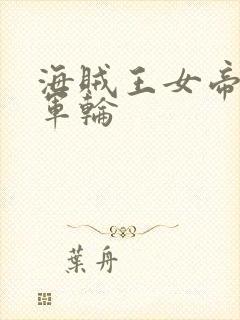 海賊王女帝
軍輪
葉舟